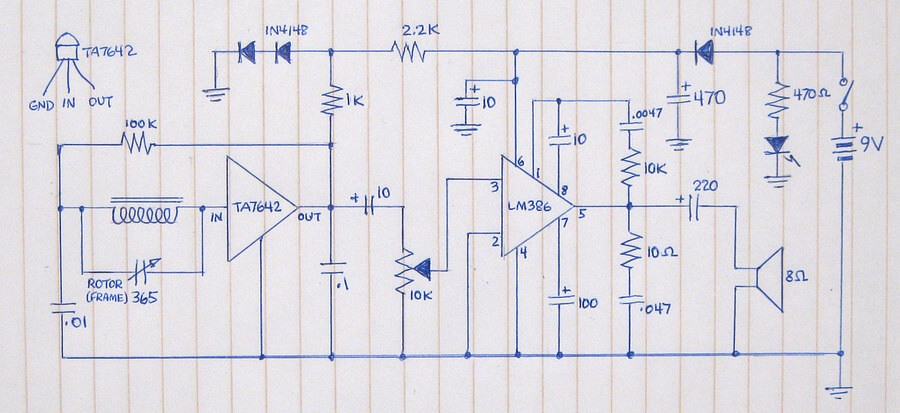 TA7642
GND IN OUT
IN4148
2.2K
IN4148
1K
100K
+
10
+
470
470Ω
+
9V
.0047
+
10
10K
6
1
8
3
LM386
5
7
2
4
IN
TA7642
OUT
+
10
10K
+
220
ROTOR
(FRAME) 365
.01
.1
+
100
10Ω
.047
8Ω